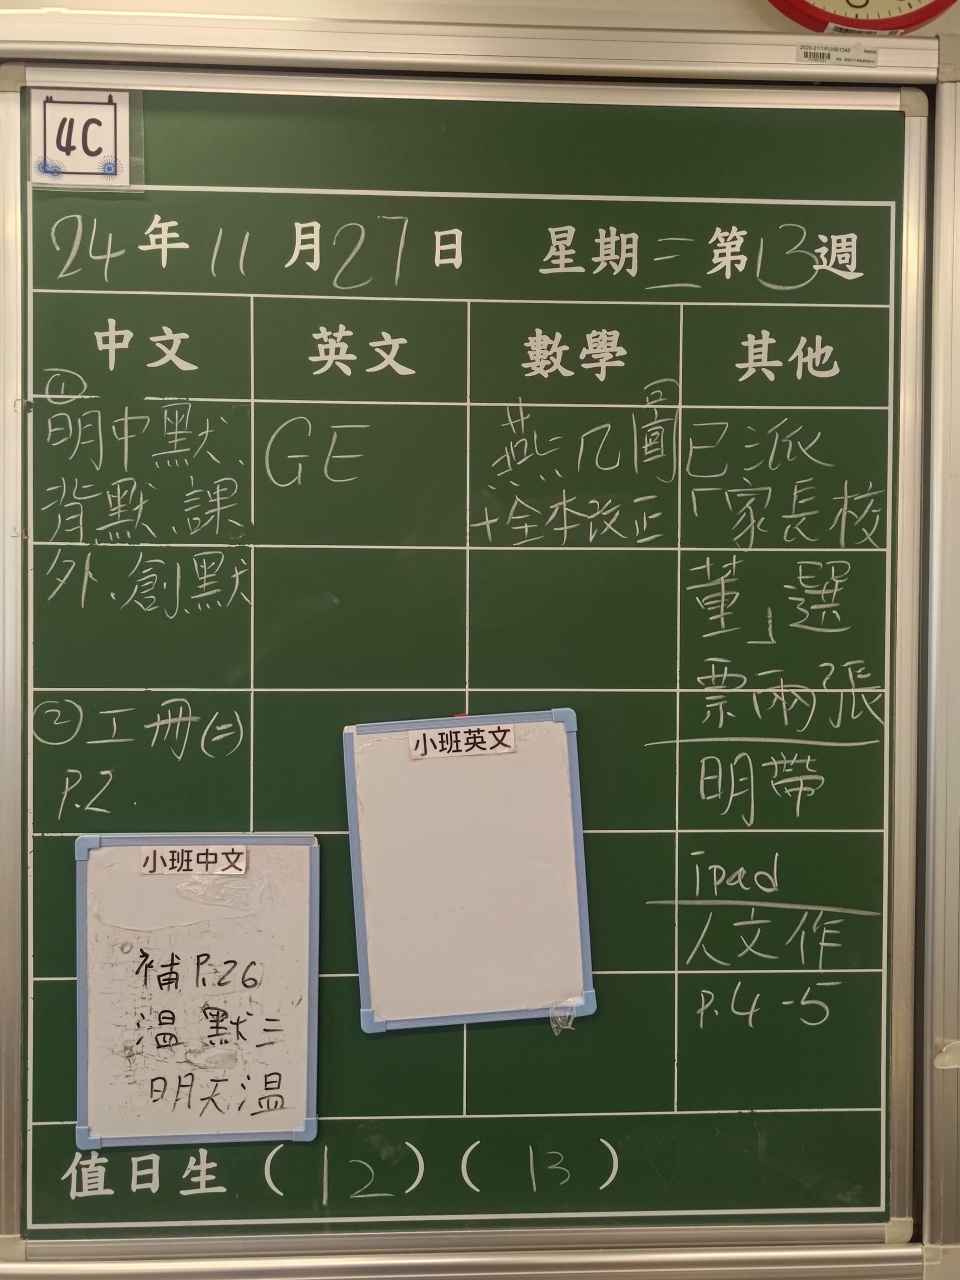 2020-21/1/FU/001345
4C
24年11月27日 星期三第13週
中文 英文 數學 其他
①
明中默、
背默、課
外、創默
②工冊(二)
P.2.
GE
燕几圖
+全本改正
已派
「家長校
董」選
票兩張
明帶
ipad
人文作
P.4-5
小班英文
小班中文
補P.26
溫默三
明天溫
值日生(12)(13)